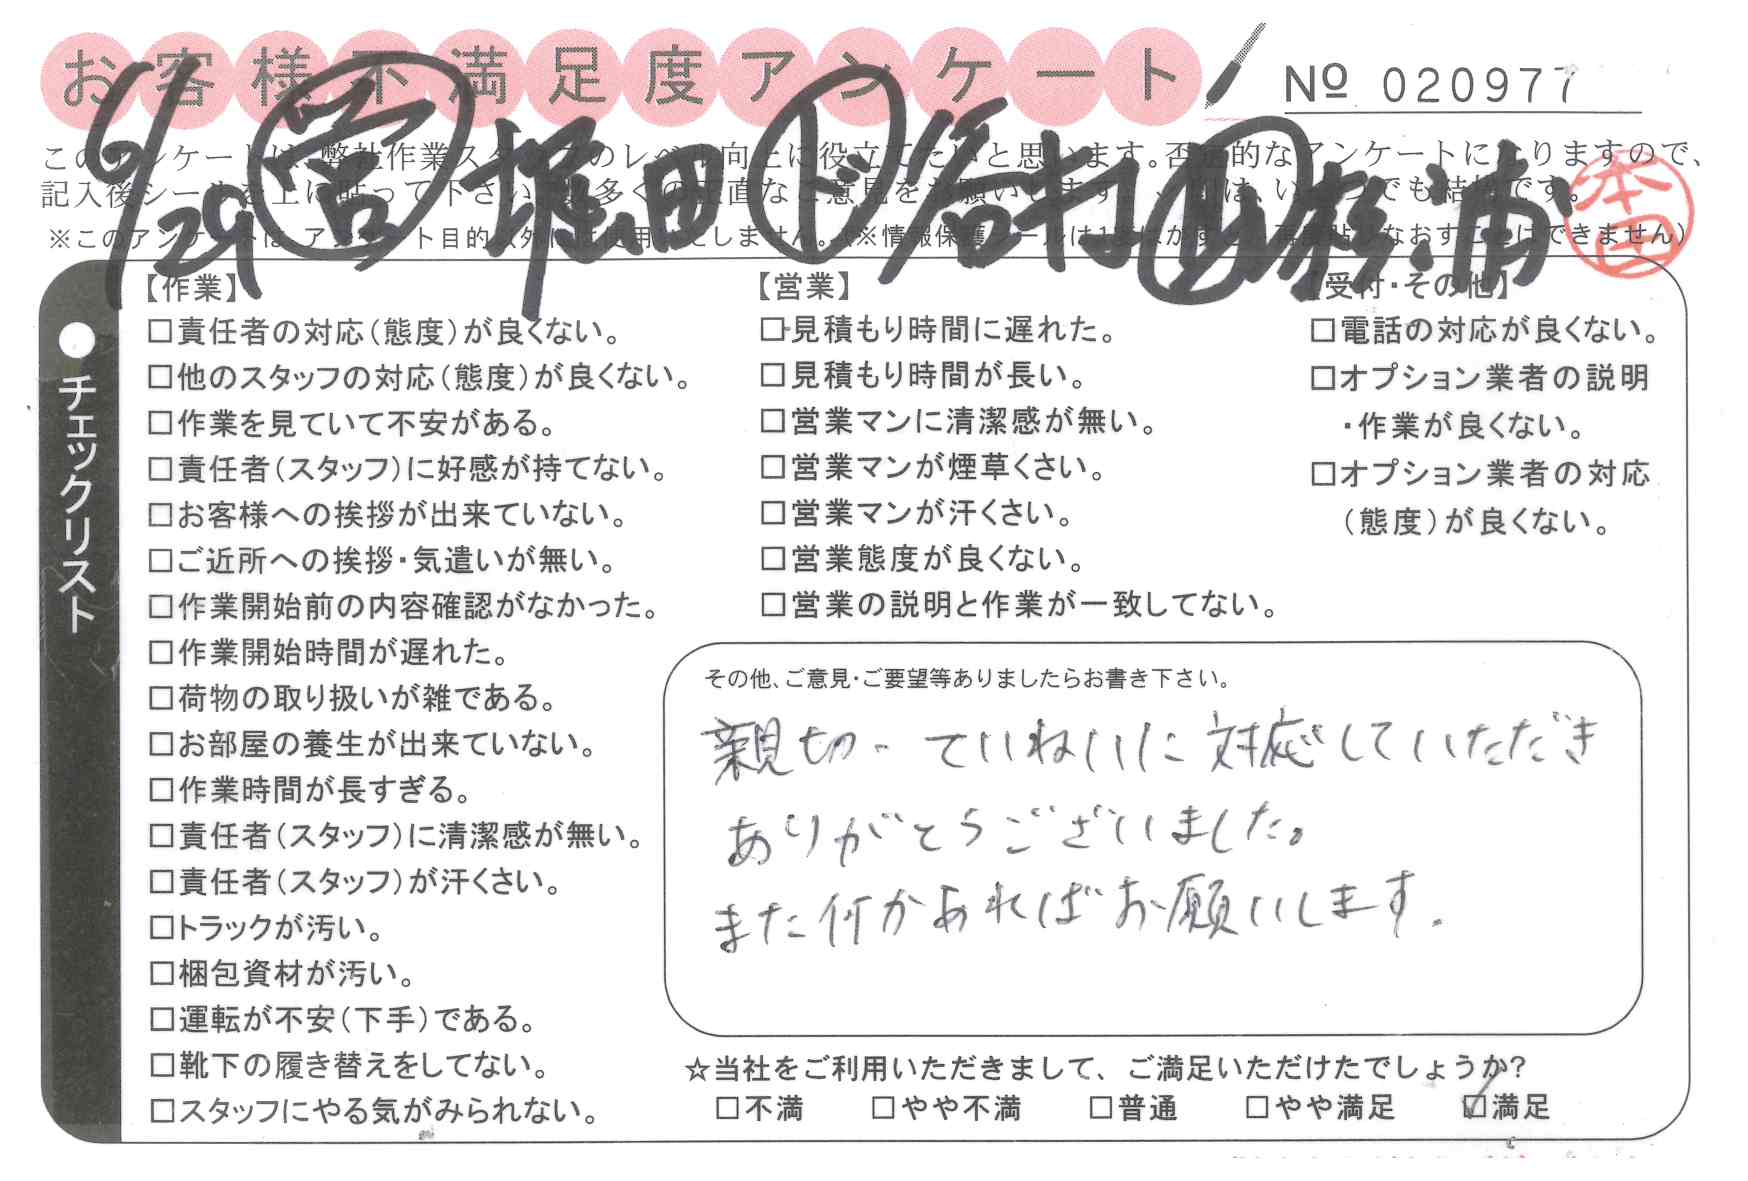 お客様不満足度アンケート
№ 020977
6/29 営 堀田 ド 谷村 助 杉浦
本田
このアンケートは、弊社作業スタッフのレベル向上に役立てたいと思います。否定的なアンケートになりますので、
記入後シールを上に貼って下さい。数多くの正直なご意見をお願いします。
※このアンケートは、アンケート目的以外には使用いたしません。(※情報保護シールは1度はがすと、再度貼りなおすことはできません)
●チェックリスト
【作業】
□責任者の対応(態度)が良くない。
□他のスタッフの対応(態度)が良くない。
□作業を見ていて不安がある。
□責任者(スタッフ)に好感が持てない。
□お客様への挨拶が出来ていない。
□ご近所への挨拶・気遣いが無い。
□作業開始前の内容確認がなかった。
□作業開始時間が遅れた。
□荷物の取り扱いが雑である。
□お部屋の養生が出来ていない。
□作業時間が長すぎる。
□責任者(スタッフ)に清潔感が無い。
□責任者(スタッフ)が汗くさい。
□トラックが汚い。
□梱包資材が汚い。
□運転が不安(下手)である。
□靴下の履き替えをしてない。
□スタッフにやる気がみられない。
【営業】
□見積もり時間に遅れた。
□見積もり時間が長い。
□営業マンに清潔感が無い。
□営業マンが煙草くさい。
□営業マンが汗くさい。
□営業態度が良くない。
□営業の説明と作業が一致してない。
【受付・その他】
□電話の対応が良くない。
□オプション業者の説明
・作業が良くない。
□オプション業者の対応
(態度)が良くない。
その他、ご意見・ご要望等ありましたらお書き下さい。
親切、ていねいに対応していただき
ありがとうございました。
また何かあればお願いします。
☆当社をご利用いただきまして、ご満足いただけたでしょうか?
□不満 □やや不満 □普通 □やや満足 ☑満足